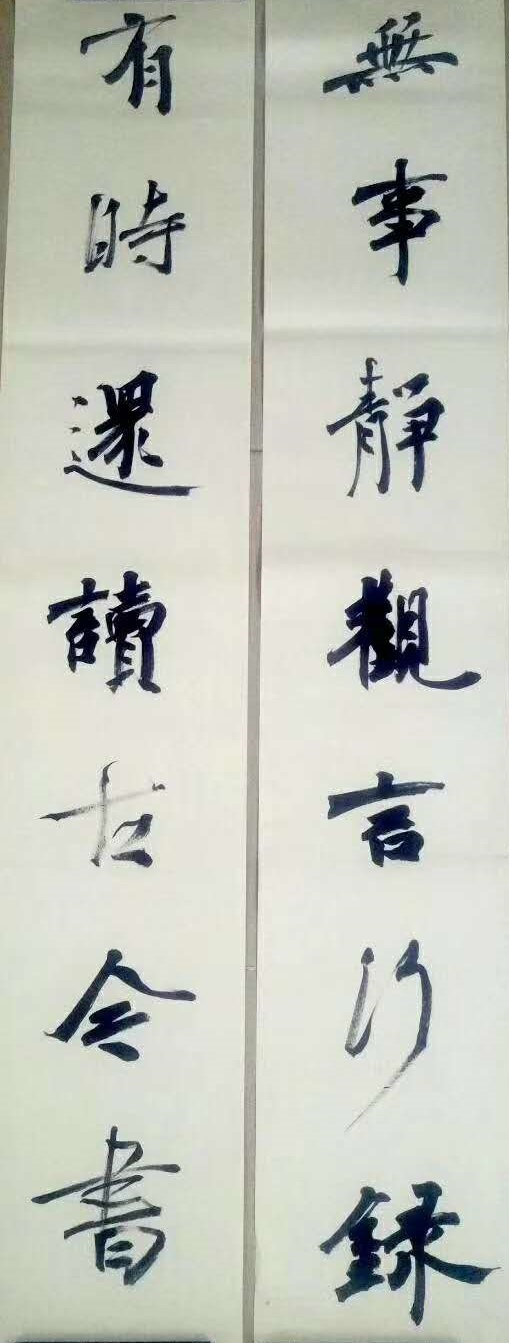 無事靜觀言行録
有時還讀古今書